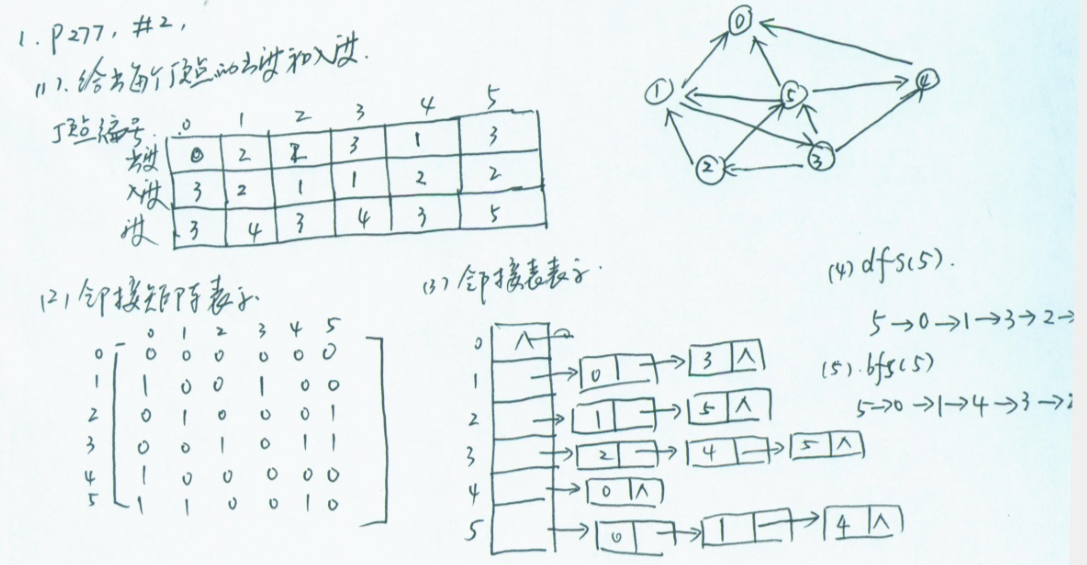 1. P277, #2,
(1). 给出每个顶点的出度和入度.
顶点编号. 0 1 2 3 4 5
出度 0 2 2 3 1 3
入度 3 2 1 1 2 2
度 3 4 3 4 3 5
0
1 5 4
2 3
(2) 邻接矩阵表示.
0 1 2 3 4 5
0 0 0 0 0 0 0
1 1 0 0 1 0 0
2 0 1 0 0 0 1
3 0 0 1 0 1 1
4 1 0 0 0 0 0
5 1 1 0 0 1 0
(3) 邻接表表示.
0 ∧
1 → 0 → 3 ∧
2 → 1 → 5 ∧
3 → 2 → 4 → 5 ∧
4 → 0 ∧
5 → 0 → 1 → 4 ∧
(4) dfs(5).
5→0→1→3→2→
(5). bfs(5)
5→0→1→4→3→2